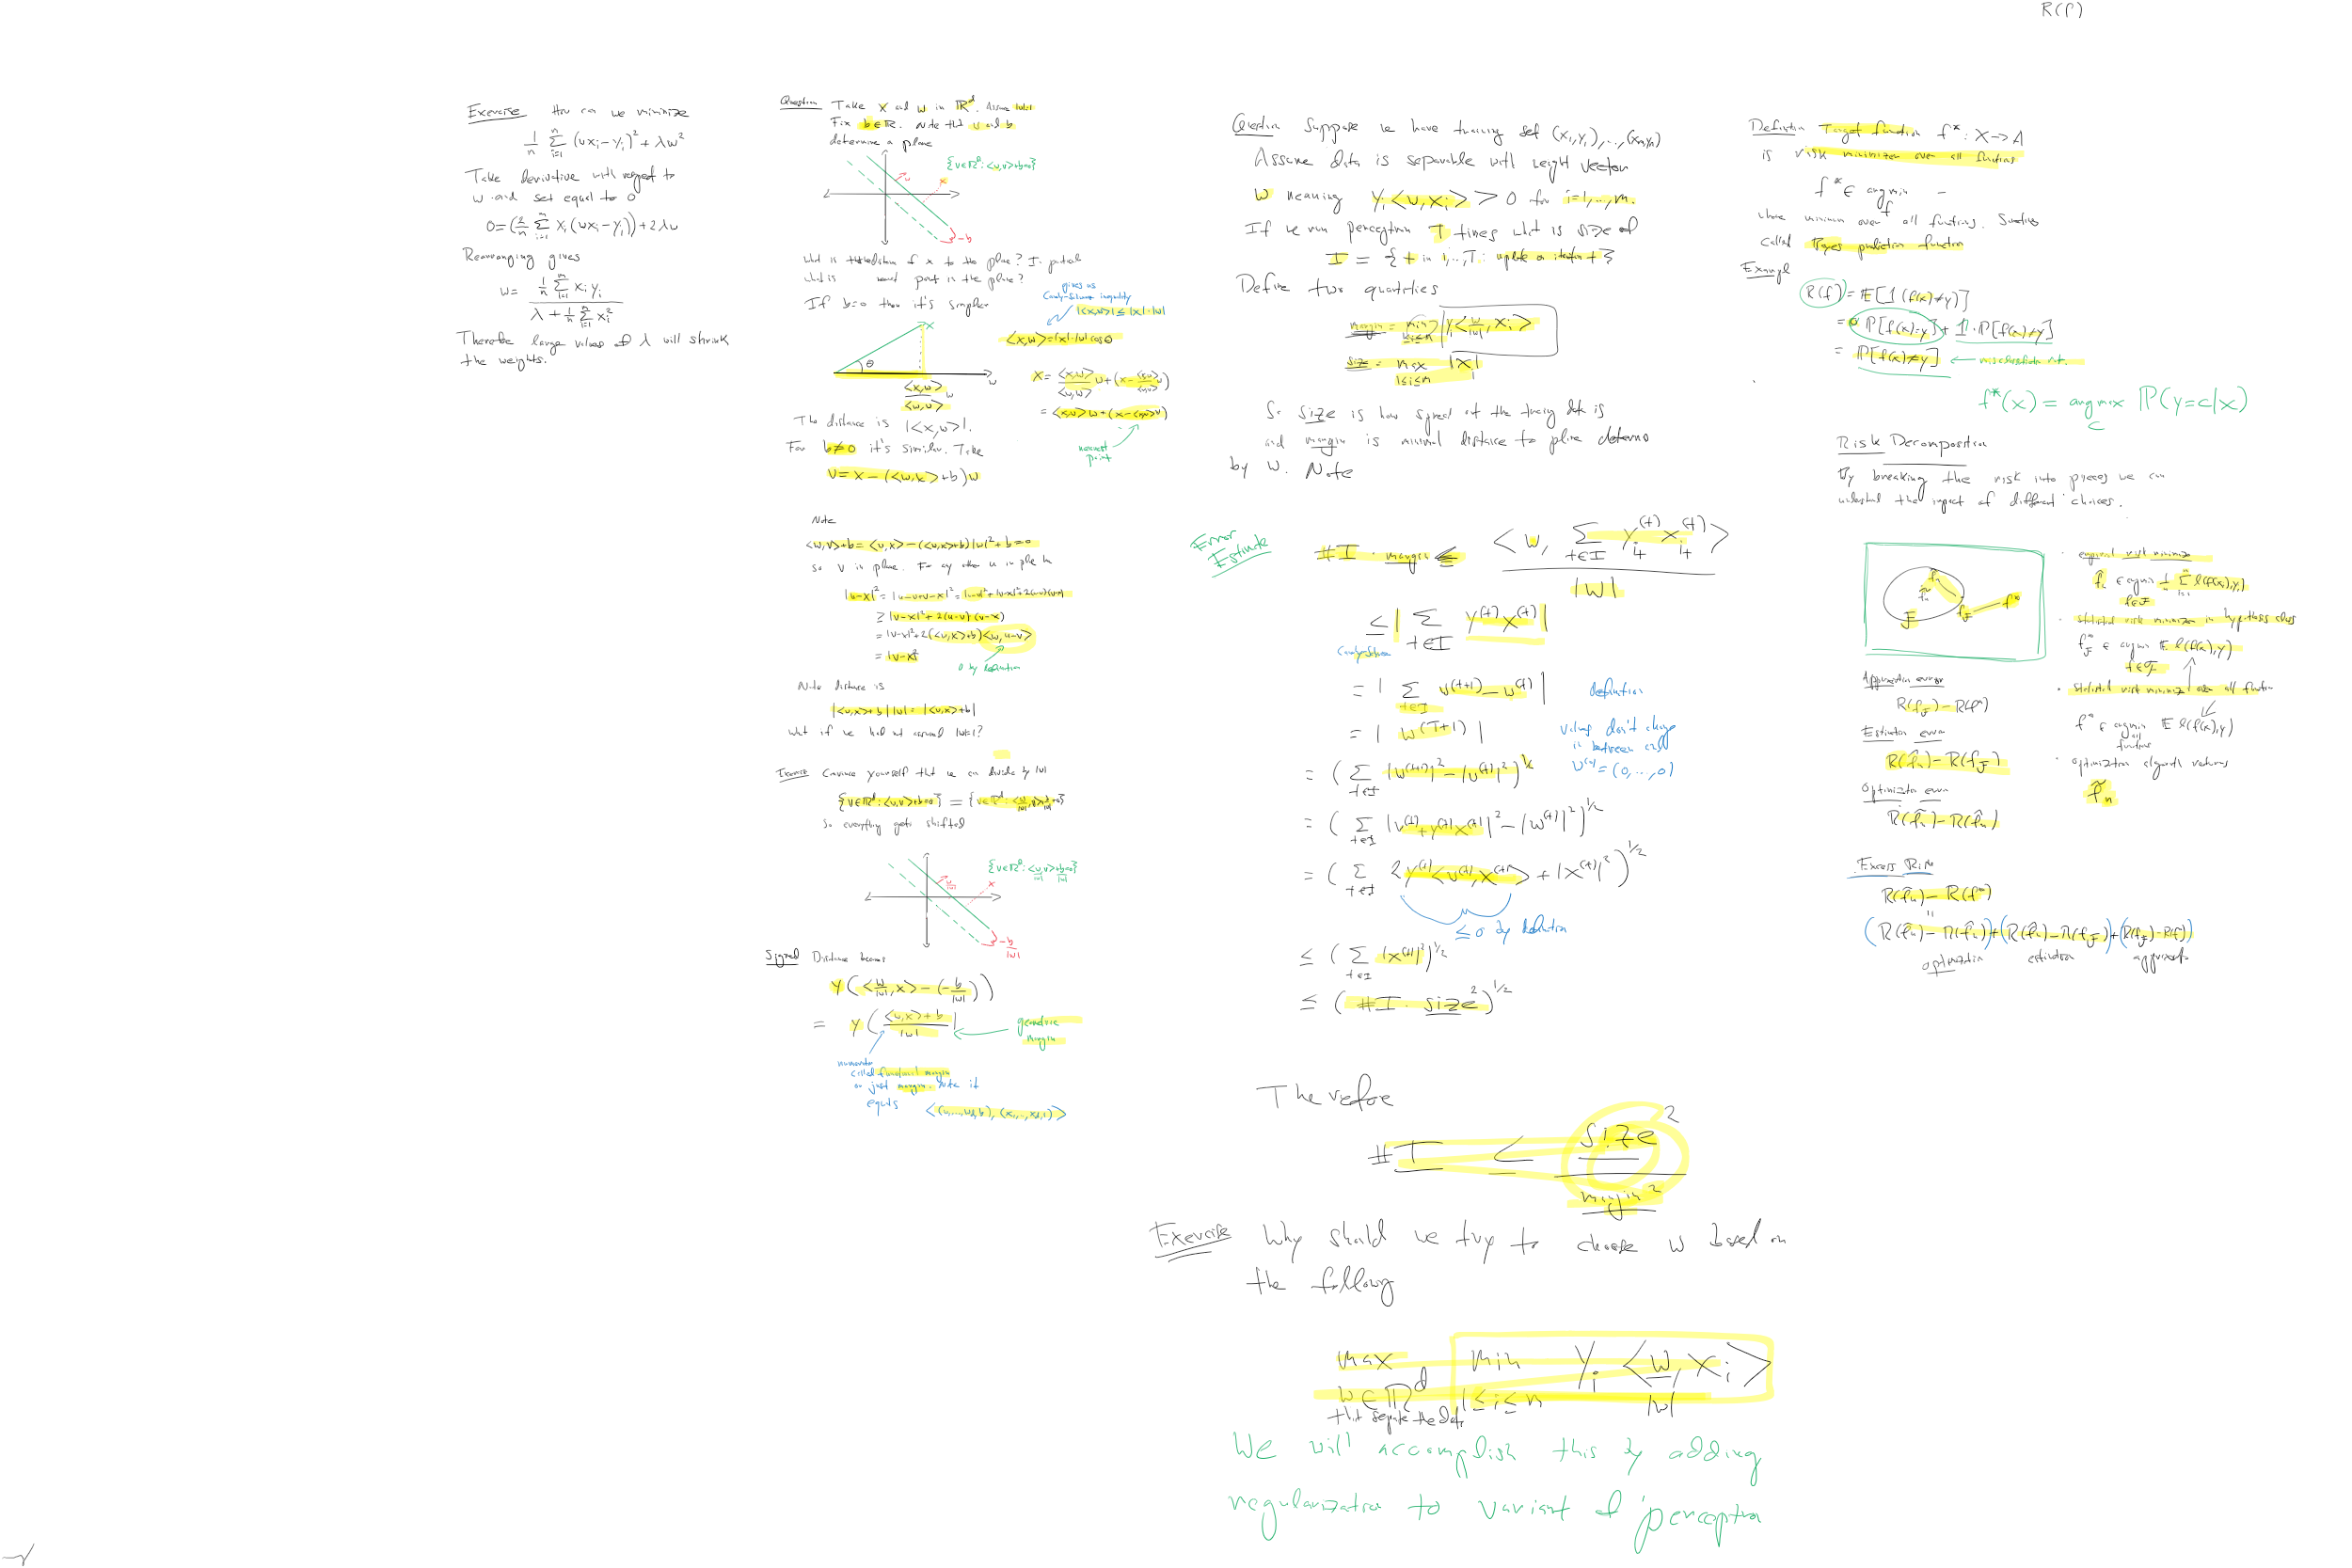 R(f)
Exercise How can we minimize
1/n Σ_{i=1}^n (wx_i - y_i)² + λw²
Take derivative with respect to
w and set equal to 0
0 = (2/n Σ_{i=1}^n x_i (wx_i - y_i)) + 2λw
Rearranging gives
w = (1/n Σ_{i=1}^n x_i y_i) / (λ + 1/n Σ_{i=1}^n x_i²)
Therefore large values of λ will shrink
the weights.
Question Take x and w in ℝ^d. Assume |w|=1
Fix b∈ℝ. Note that w and b
determine a plane
{v∈ℝ^d: <w,v>+b=0}
w
x
-b
what is the distance of x to the plane? In
what is point in the plane?
If b=0 then it's simpler
gives us
Cauchy-Schwarz inequality
|<x,w>| ≤ |x|·|w|
x
<x,w> = |x|·|w| cos θ
θ
w
<x,w>/<w,w> w
x = <x,w>/<w,w> w + (x - <x,w>/<w,w> w)
= <x,w> w + (x - <x,w> w)
nearest
point
The distance is |<x,w>|.
For b≠0 it's similar. Take
v = x - (<w,x>+b)w
Note
<w,v>+b = <w,x> - (<w,x>+b)|w|² + b = 0
so v in plane. For any other u in plane
|u-x|² = |u-v+v-x|² = |u-v|² + |v-x|² + 2(u-v)·(v-x)
≥ |v-x|² + 2(u-v)·(v-x)
= |v-x|² + 2(<w,x>+b)<w,u-v>
= |v-x|²
0 by definition
Note distance is
|<w,x>+b||w| = |<w,x>+b|
what if we had not assumed |w|=1?
Exercise Convince yourself that we can divide by |w|
{v∈ℝ^d: <w,v>+b=0} = {v∈ℝ^d: <w/|w|,v>+b/|w|=0}
So everything gets shifted
{v∈ℝ^d: <w/|w|,v>+b/|w|=0}
w/|w|
x
-b/|w|
Signed Distance becomes
y(<w/|w|,x> - (-b/|w|))
= y(<w,x>+b)/|w|
geometric
margin
numerator
called functional margin
or just margin. Note it
equals <(w_1,...,w_d,b), (x_1,...,x_d,1)>
Question Suppose we have training set (x_1,y_1),...,(x_n,y_n)
Assume data is separable with weight vector
w meaning y_i<w,x_i> > 0 for i=1,...,n.
If we run perceptron T times what is size of
I = {t in 1,...,T: update on iteration t}
Define two quantities
margin = min_{1≤i≤n} |y_i<w/|w|, x_i>
size = max_{1≤i≤n} |x_i|
So size is how spread out the training data is
and margin is minimal distance to plane determined
by w. Note
Error
Estimate
#I · margin ≤ <w, Σ_{t∈I} y_{i_t}^{(t)} x_{i_t}^{(t)}> / |w|
≤ |Σ_{t∈I} y^{(t)}x^{(t)}|
Cauchy-Schwarz
= |Σ_{t∈I} w^{(t+1)} - w^{(t)}| definition
= |w^{(T+1)}| values don't change
in between and
w^{(1)} = (0,...,0)
= (Σ_{t∈I} |w^{(t+1)}|² - |w^{(t)}|²)^{1/2}
= (Σ_{t∈I} |w^{(t)}+y^{(t)}x^{(t)}|² - |w^{(t)}|²)^{1/2}
= (Σ_{t∈I} 2y^{(t)}<w^{(t)},x^{(t)}> + |x^{(t)}|²)^{1/2}
≤0 by definition
≤ (Σ_{t∈I} |x^{(t)}|²)^{1/2}
≤ (#I · size²)^{1/2}
Therefore
#I ≤ size² / margin²
Exercise Why should we try to choose w based on
the following
max_{w∈ℝ^d} min_{1≤i≤n} y_i <w/|w|, x_i>
that separate the data
We will accomplish this by adding
regularization to variant of perceptron
Definition Target function f*: X→A
is risk minimizer over all functions
f* ∈ argmin_f
where minimum over all functions. Sometimes
called Bayes prediction function
Example
R(f) = E[1(f(x)≠y)]
= 0 P[f(x)=y] + 1·P[f(x)≠y]
= P[f(x)≠y] ← misclassification rate.
f*(x) = argmax_c P(y=c|x)
Risk Decomposition
By breaking the risk into pieces we can
understand the impact of different choices.
f̂_n
f̃_n
F
f_F
f*
· empirical risk minimizer
f̂_n ∈ argmin_{f∈F} 1/n Σ_{i=1}^n ℓ(f(x_i),y_i)
· statistical risk minimizer in hypothesis class
f*_F ∈ argmin_{f∈F} E ℓ(f(x),y)
· statistical risk minimizer over all function
f* ∈ argmin_{all functions} E ℓ(f(x),y)
· optimization algorithm returns
f̃_n
Approximation error
R(f_F) - R(f*)
Estimation error
R(f̂_n) - R(f_F)
Optimization error
R(f̃_n) - R(f̂_n)
Excess Risk
R(f̃_n) - R(f*)
=
(R(f̃_n) - R(f̂_n)) + (R(f̂_n) - R(f_F)) + (R(f_F) - R(f*))
optimization estimation approximation